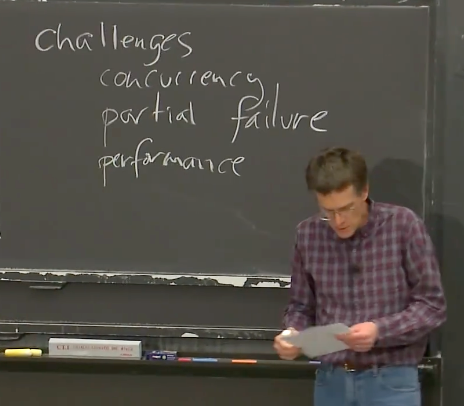 challenges
concurrency
partial failure
performance